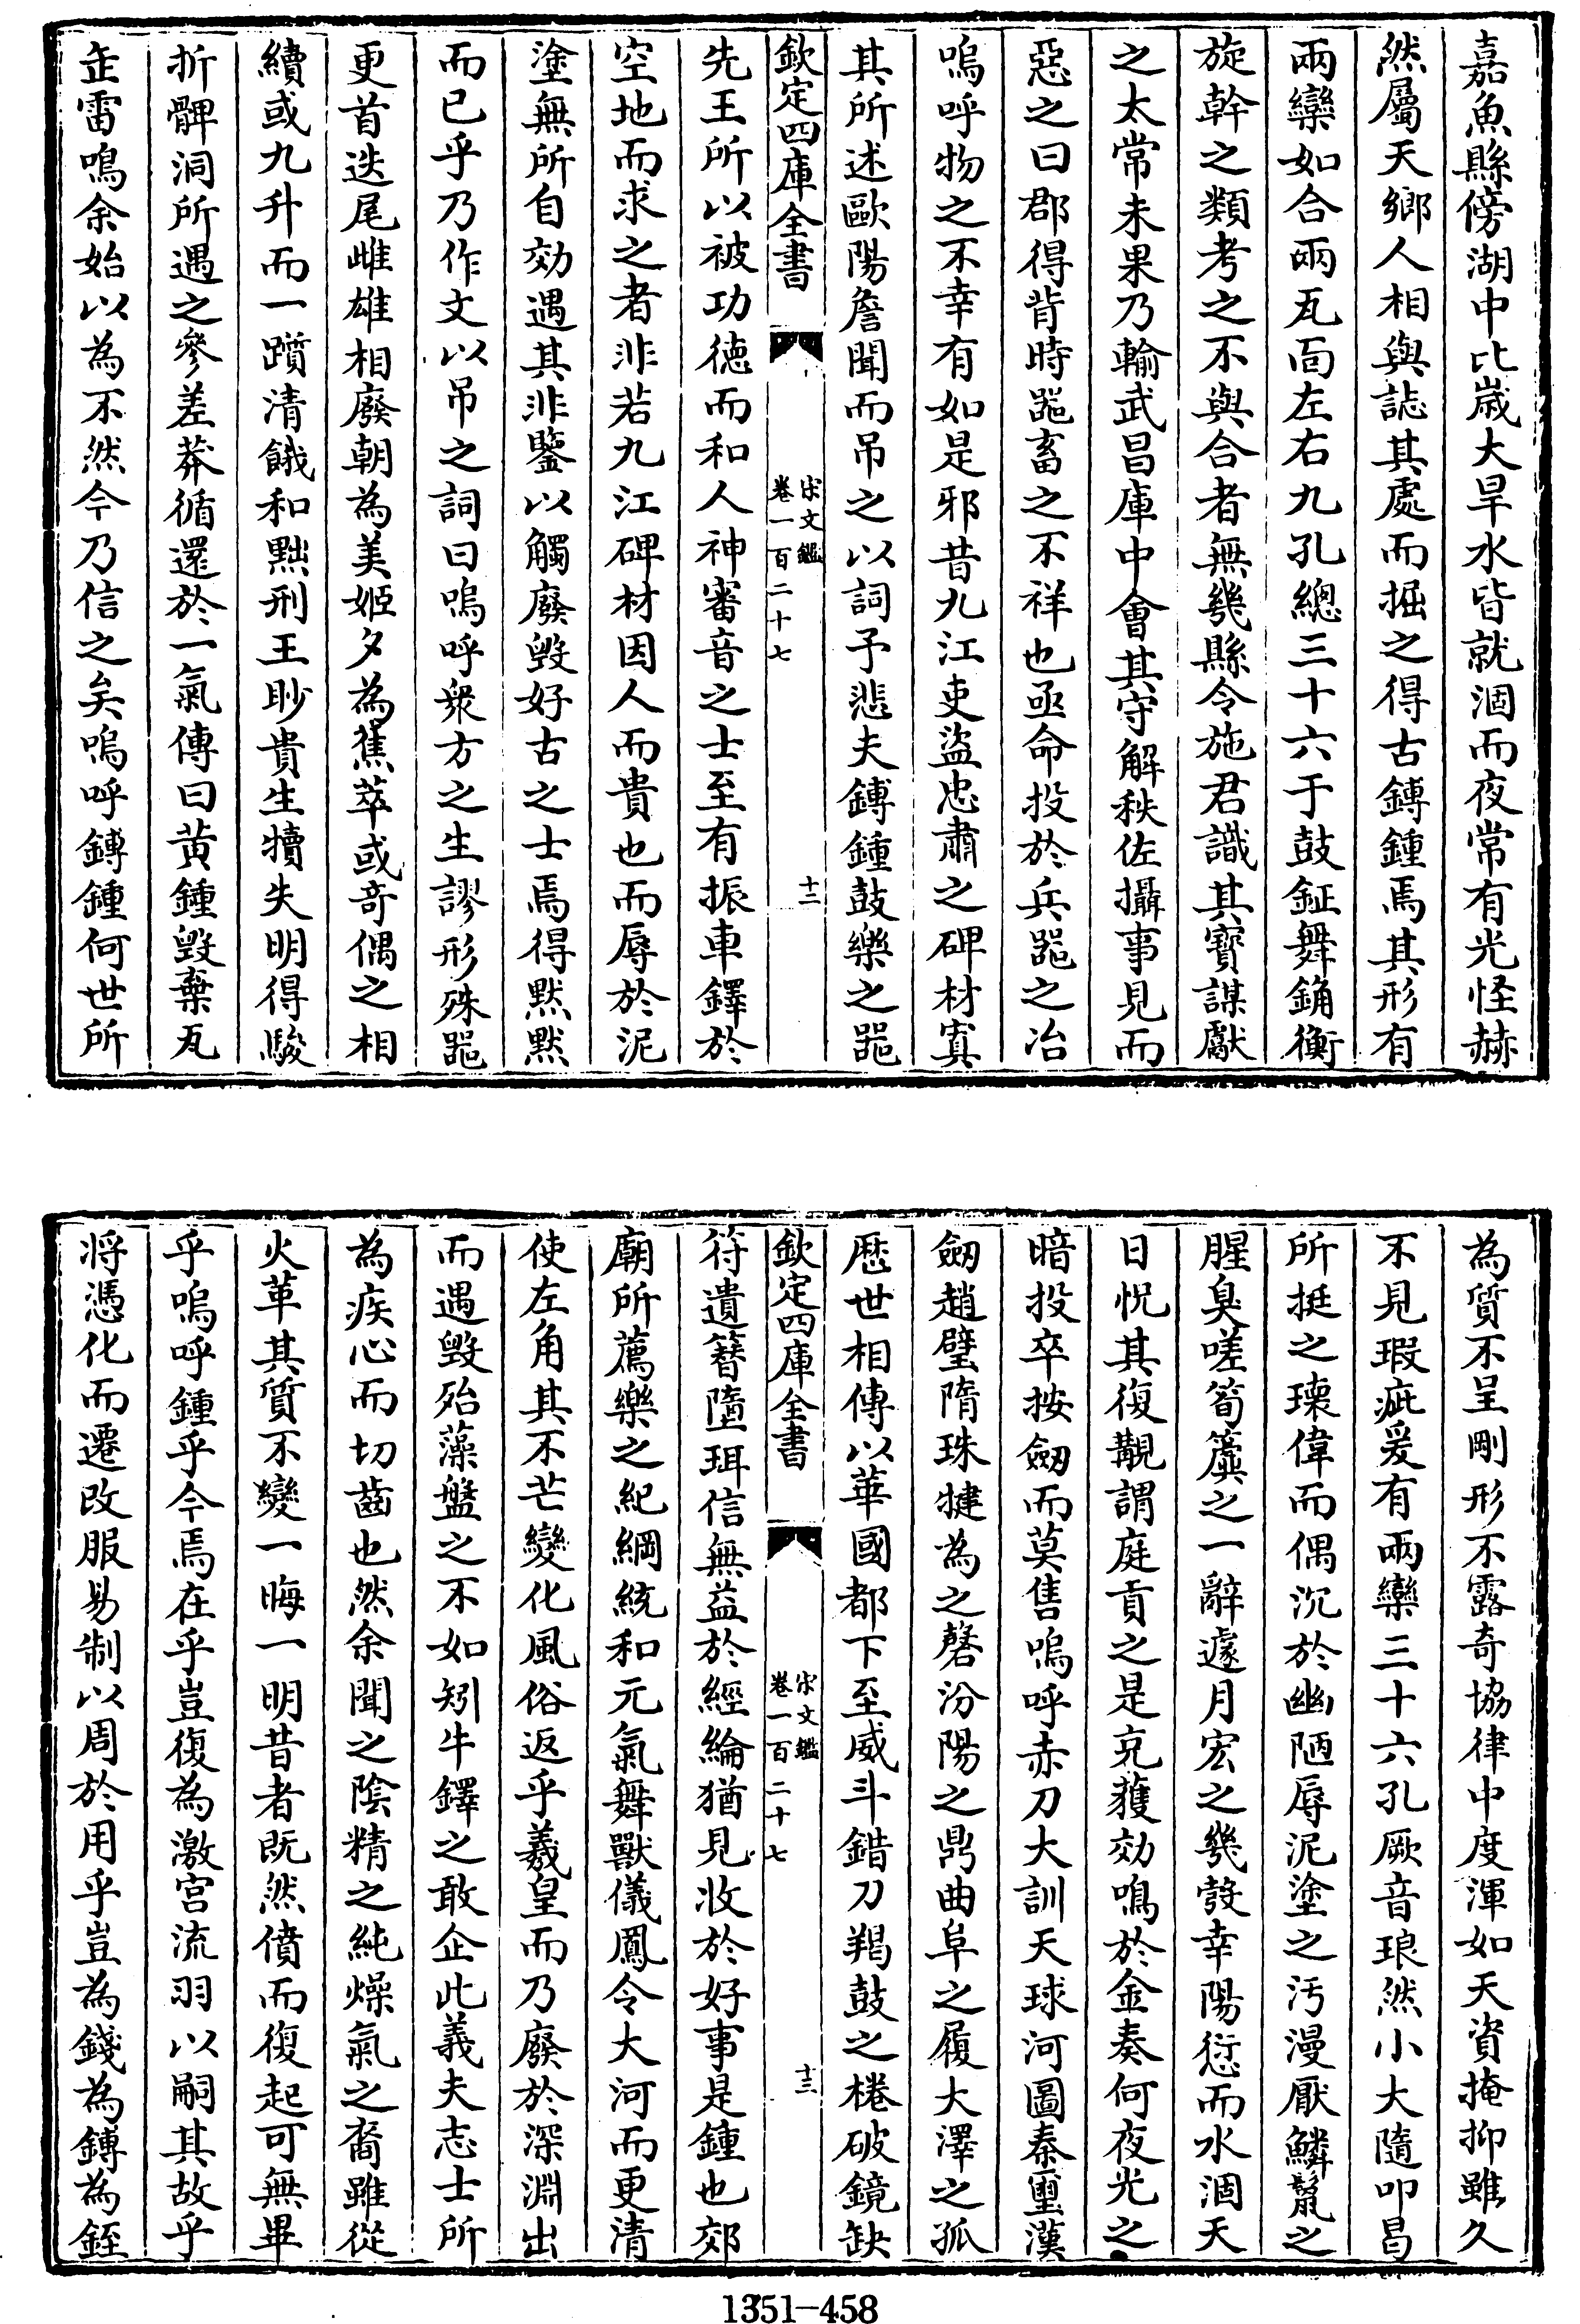 嘉魚縣傍湖中比歲大旱水皆就涸而夜常有光怪赫
然屬天鄉人相與誌其處而掘之得古鎛鍾焉其形有
兩欒如合兩瓦面左右九孔總三十六于鼓鉦舞鏞衡
旋幹之類考之不與合者無幾縣令施君識其寶謀獻
之太常未果乃輸武昌庫中會其守解秩佐攝事見而
惡之曰郡得背時器畜之不祥也亟命投於兵器之冶
嗚呼物之不幸有如是邪昔九江吏盜忠肅之碑材寘
其所述歐陽詹聞而吊之以詞予悲夫鎛鍾鼓樂之器
欽定四庫全書
宋文鑑
卷一百二十七
十二
先王所以被功德而和人神審音之士至有振車鐸於
空地而求之者非若九江碑材因人而貴也而辱於泥
塗無所自効遇其非鑒以觸廢毀好古之士焉得黙黙
而已乎乃作文以吊之詞曰嗚呼衆方之生謬形殊器
更首迭尾雌雄相廢朝為美姬夕為蕉萃或奇偶之相
續或九升而一躓清餓和黜刑王眇貴生犢失明得駿
折髀洞所遇之參差莽循還於一氣傳曰黃鍾毀棄瓦
缶雷鳴余始以為不然今乃信之矣嗚呼鎛鍾何世所
為質不呈剛形不露奇協律中度渾如天資掩抑雖久
不見瑕疵爰有兩欒三十六孔厥音琅然小大隨叩昌
所挺之瓌偉而偶沉於幽陋辱泥塗之汚漫厭鱗鬛之
腥臭嗟筍簴之一辭遽月宏之幾彀幸陽愆而水涸天
日怳其復覩謂庭貢之是克獲効鳴於金奏何夜光之
暗投卒按劒而莫售嗚呼赤刀大訓天球河圖秦璽漢
劒趙璧隋珠犍為之磬汾陽之鼎曲阜之履大澤之孤
歷世相傳以華國都下至威斗錯刀羯鼓之棬破鏡缺
欽定四庫全書
宋文鑑
卷一百二十七
十三
符遺簪墮珥信無益於經綸猶見收於好事是鍾也郊
廟所薦樂之紀綱統和元氣舞獸儀鳳令大河而更清
使左角其不芒變化風俗返乎羲皇而乃廢於深淵出
而遇毀殆藻盤之不如矧牛鐸之敢企此義夫志士所
為疾心而切齒也然余聞之陰精之純燥氣之裔雖從
火革其質不變一晦一明昔者既然僨而復起可無畢
乎嗚呼鍾乎今焉在乎豈復為激宫流羽以嗣其故乎
將憑化而遷改服易制以周於用乎豈為錢為鎛為銍
1351-458